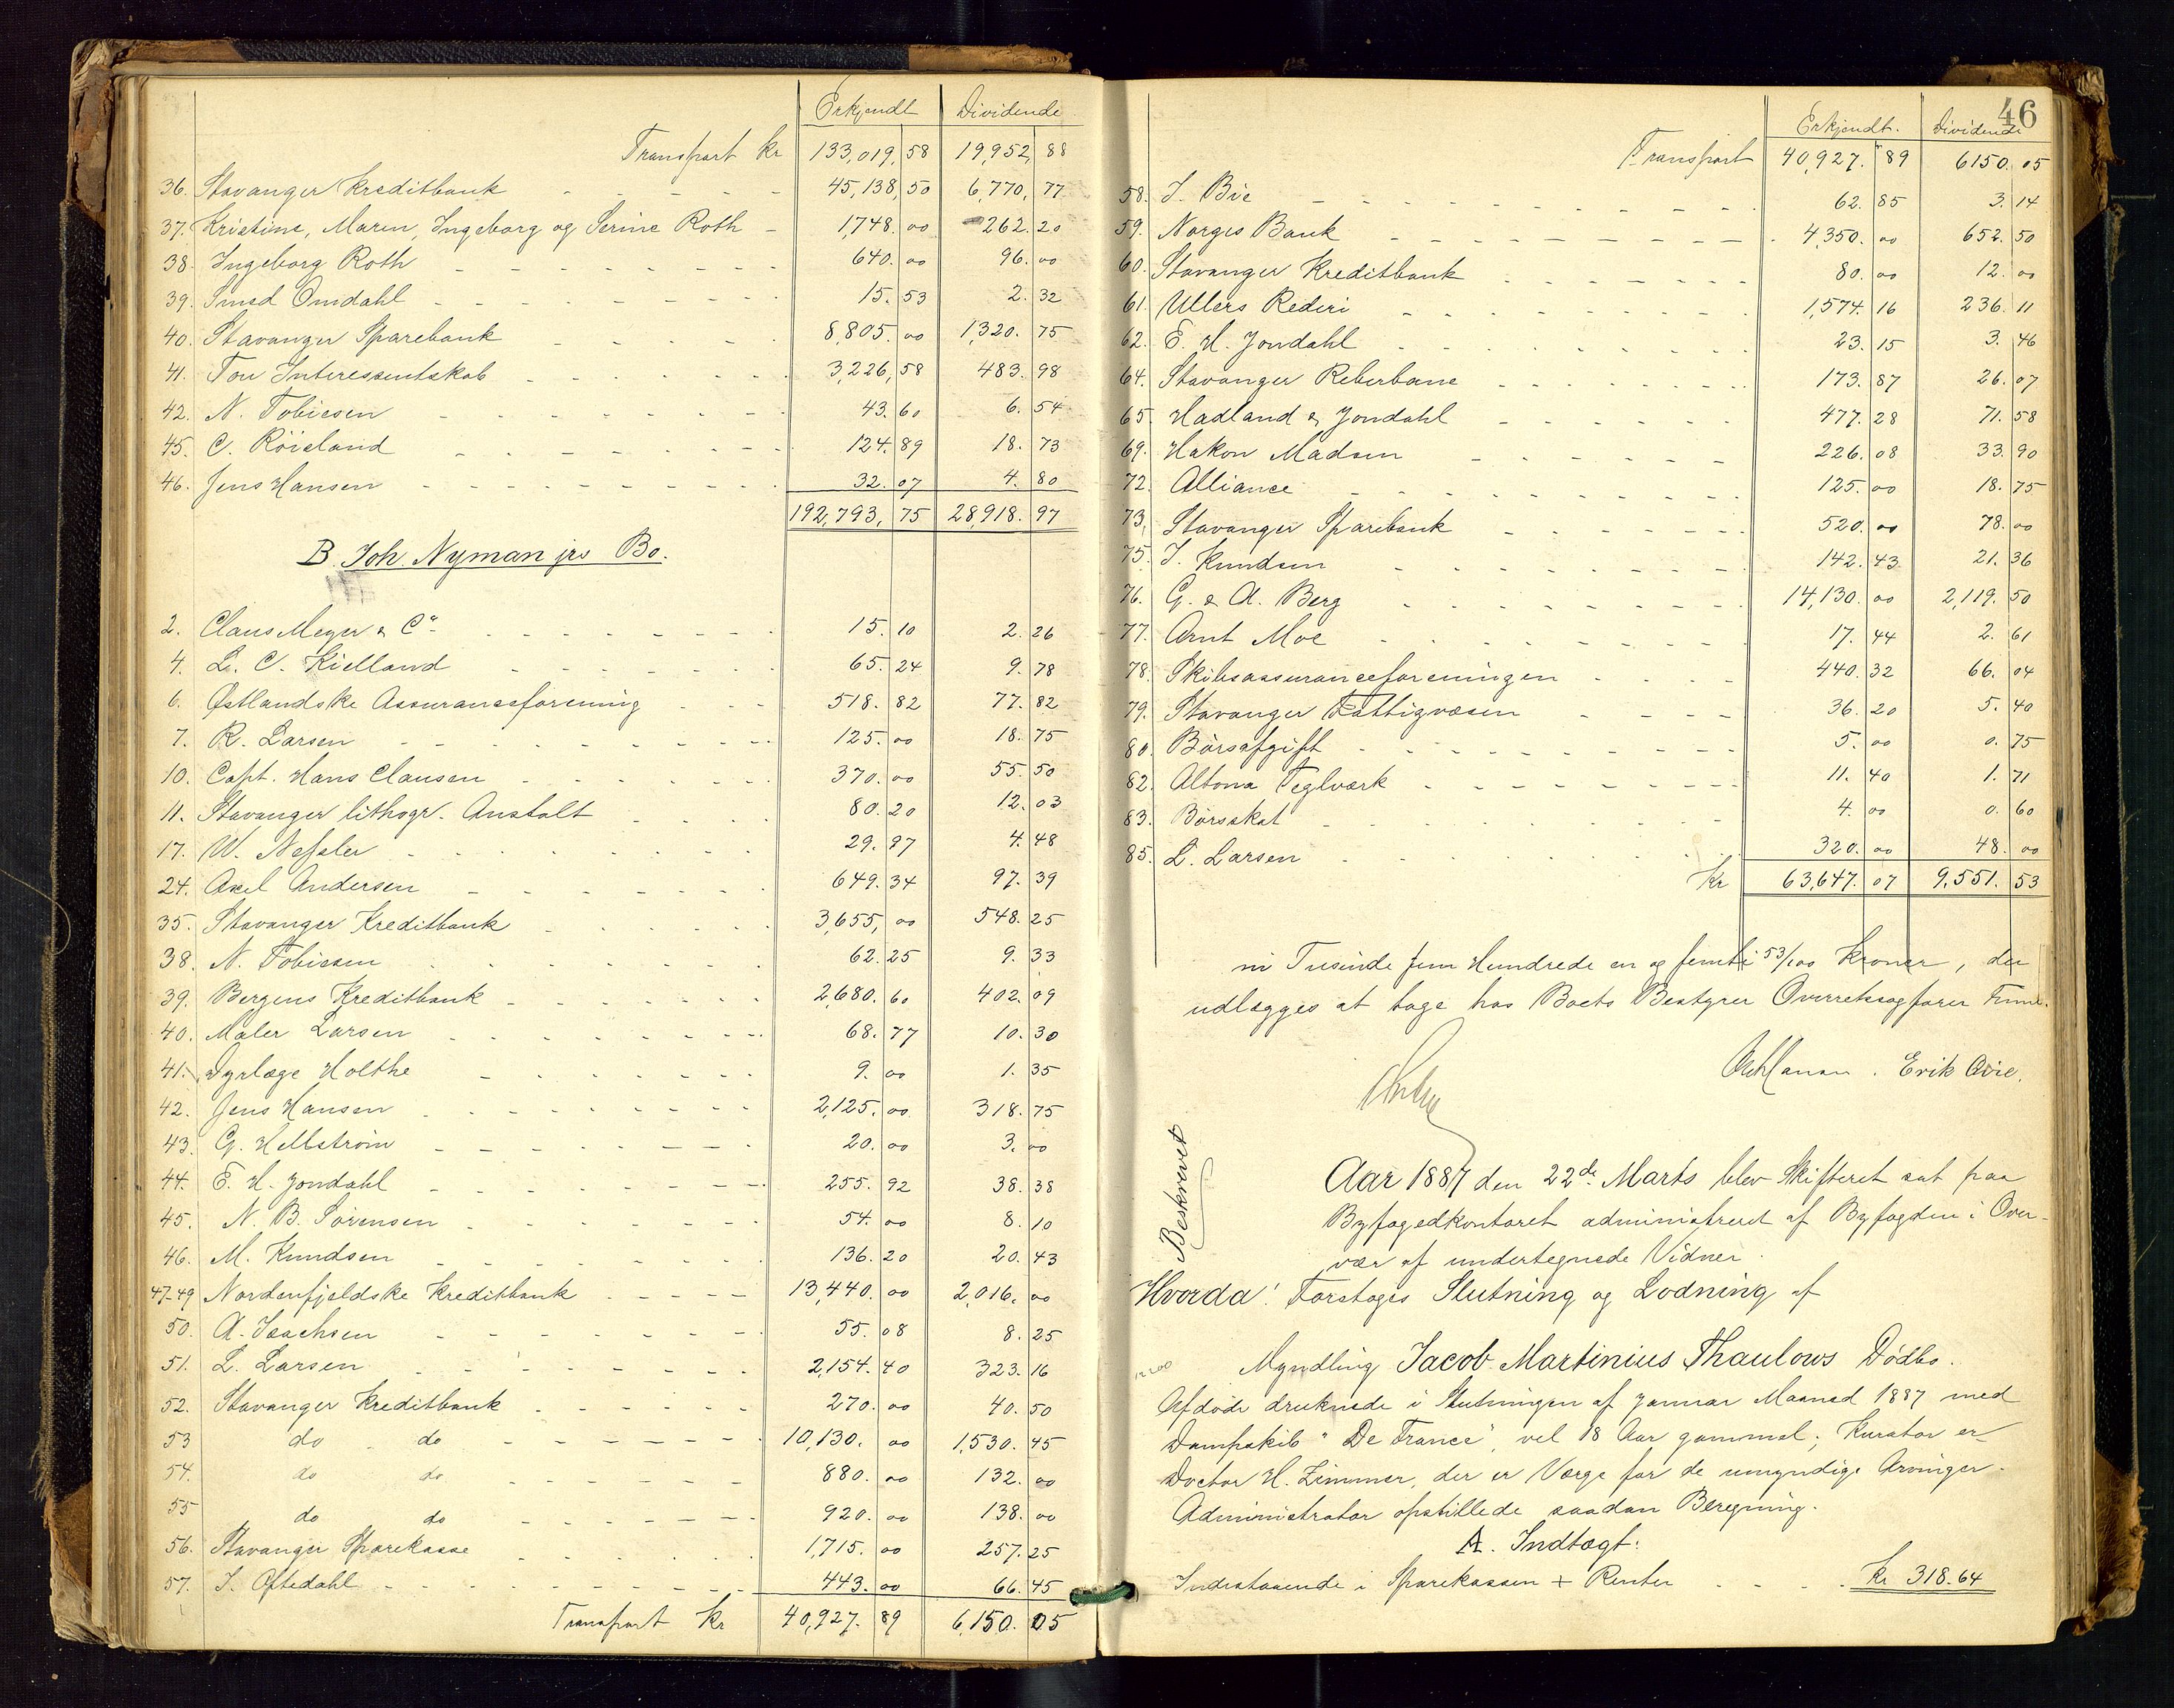 Erkjendt Dividende
Transport Kr 133,019,58 19,952,88
36. Stavanger Kreditbank 45,138,50 6,770,77
37. Kristine, Maren, Ingeborg og Serine Roth 1,748.00 262.20
38. Ingeborg Roth 640.00 96.00
39. Smed Omdahl 15.53 2.32
40. Stavanger Sparebank 8,805.00 1,320.75
41. Tou Interessentskab 3,226,58 483.98
42. N. Tobiesen 43.60 6.54
45. C. Röieland 124.89 18.73
46. Jens Hansen 32.07 4.80
192,793,75 28,918.97
B. Joh. Nyman jrs Bo.
2. Claus Meyer & Co 15.10 2.26
4. L. C. Kielland 65.24 9.78
6. Østlandske Assuranceforening 518.82 77.82
7. R. Larsen 125.00 18.75
10. Capt. Hans Clausen 370.00 55.50
11. Stavanger lithogr. Anstalt 80.20 12.03
17. W. Nesler 29.97 4.48
24. Axel Andersen 649.34 97.39
35. Stavanger Kreditbank 3,655,00 548.25
38. N. Tobiesen 62.25 9.33
39. Bergens Kreditbank 2,680.60 402.09
40. Maler Larsen 68.77 10.30
41. Dyrlæge Holthe 9.00 1.35
42. Jens Hansen 2,125.00 318.75
43. G. Hellström 20.00 3.00
44. E. H. Jondahl 255.92 38.38
45. N. B. Sörensen 54.00 8.10
46. M. Knudsen 136.20 20.43
47-49 Nordenfjeldske Kreditbank 13,440.00 2,016.00
50. A. Isachsen 55.08 8.25
51. L. Larsen 2,154.40 323.16
52. Stavanger Kreditbank 270.00 40.50
53 do do 10,130.00 1,530.45
54. do do 880.00 132.00
55 do do 920.00 138.00
56. Stavanger Sparekasse 1,715.00 257.25
57. I. Oftedahl 443.00 66.45
Transport Kr 40,927.89 6,150.05
46
Erkjendt. Dividende
Transport 40,927.89 6150.05
58. I. Bie 62.85 3.14
59. Norges Bank 4,350.00 652.50
60. Stavanger Kreditbank 80.00 12.00
61. Ullers Rederi 1,574.16 236.11
62. E. H. Jondahl 23.15 3.46
64. Stavanger Reberbane 173.87 26.07
65. Hadland & Jondahl 477.28 71.58
69. Hakon Madsen 226.08 33.90
72. Alliance 125.00 18.75
73. Stavanger Sparebank 520.00 78.00
75. I. Knudsen 142.43 21.36
76. G. & A. Berg 14,130.00 2,119.50
77. Arnt Moe 17.44 2.61
78. Skibsassuranceforeningen 440.32 66.04
79. Stavanger Fattigvæsen 36.20 5.40
80. Börsafgift 5.00 0.75
82. Altona Teglværk 11.40 1.71
83. Börsskat 4.00 0.60
85. L. Larsen 320.00 48.00
Kr 63,647.07 9,551.53
ni Tusinde fem Hundrede en og femti 53/100 Kroner, der
udlægges at tage hos Boets Bestyrer Overretssagfører
Erik Øvie.
Beskrevet
Aar 1887 den 22de Marts blev Skifteret sat paa
Byfogedkontoret administreret af Byfogden i Over-
vær af undertegnede Vidner.
Hvorda! Foretoges Slutning og Lodning af
Myndling Jacob Martinius Thaulows Dödbo.
Afdöde druknede i Slutningen af Januar Maaned 1887 med
Dampskib "De France", vel 18 Aar gammel; Kurator er
Doctor H. Zimmer, der er Værge for de umyndige Arvinger.
Administrator opstillede saadan Beregning.
A. Indtægt:
Indestaaende i Sparekassen + Renter Kr 318.64